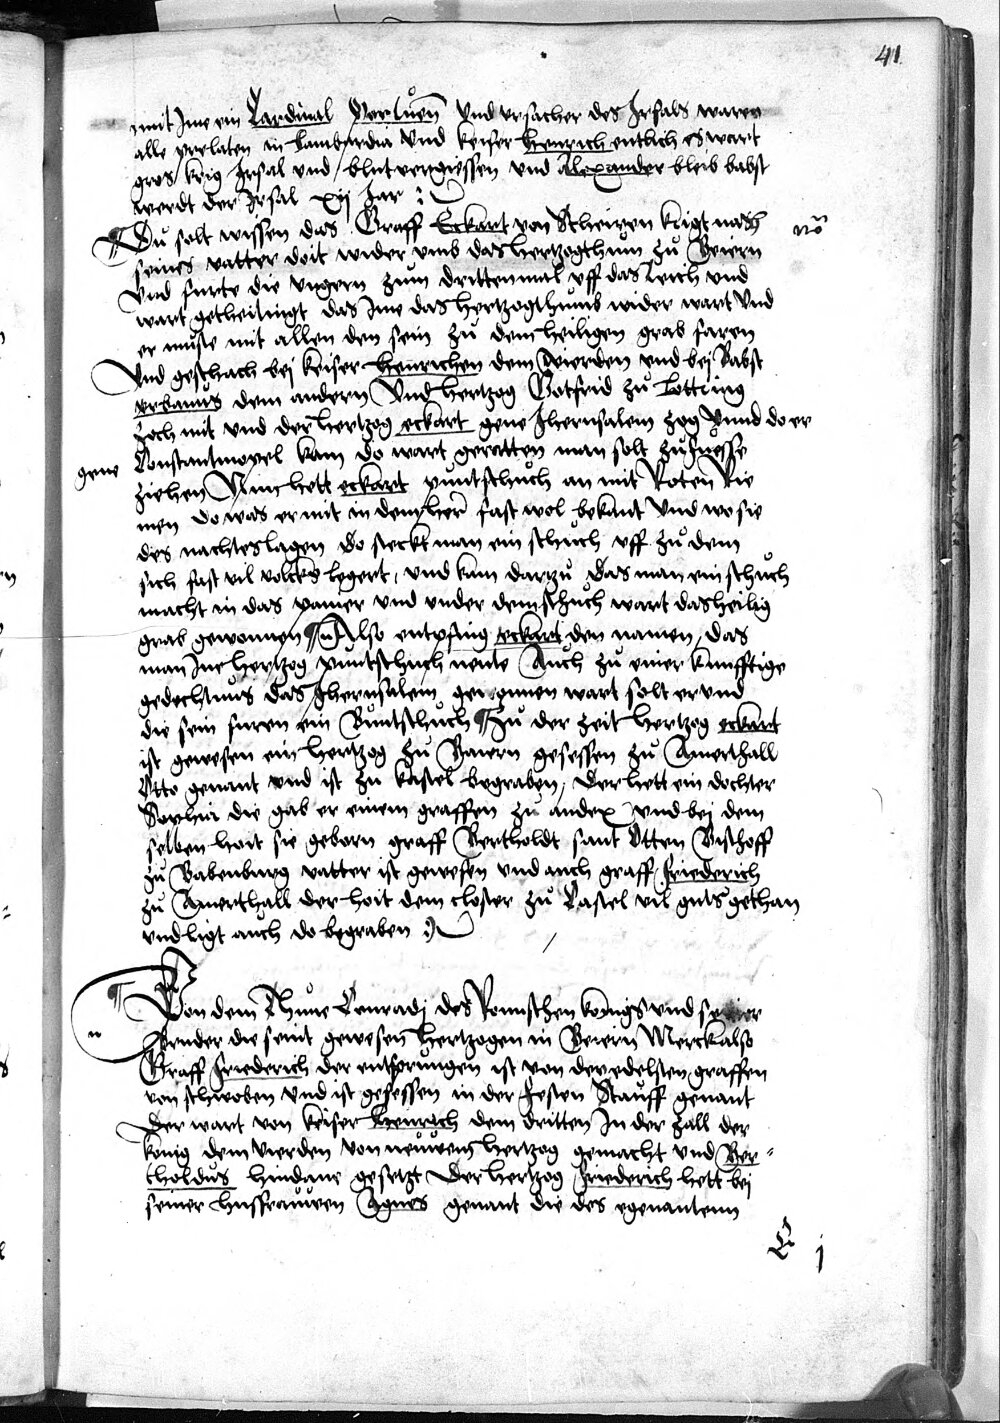 41
mit Ime ein Cardinal Verluen Vnd vrsacher des Irsals waren
alle prelaten in Lambardia vnd keiser henrich entlich es wart
gros krig Irsal vnd blutvergiessen vnd Alexander bleib babst
werdt der Irsal xij Jar
Du solt wissen das Graff Eckart von Scheiren krigt nach
seines vatter doit wider vmb das hertzogthum zu Beiern
Vnd furte die vngern zum dritten mal vff das Reich vnd
wart getheitingt das Ime das hertzogthumb wider wart Vnd
er muste mit allen den sein zu dem heiligen grab faren
Vnd geschach bei keiser henrichen dem vierden vnd bei Babst
vrbanus dem andern Vnd hertzog Gotfrid zu Lotting
zoch mit vnd der hertzog eckart gene Jherusalem zog Vnnd do er
gene Constantinopel kam do wart geratten man solt zu fuesse
ziehen Nun hett eckart puntschuch an mit Roten Rie
men do was er mit in dem her fast wol bekant Vnd wo sie
des nachtes lagen Do steckt man ein schuch vff zu dem
sich fast vil volcks legert, vnd kam dartzu Das man ein schuch
macht in das paner vnd vnder dem schuch wart das heilig
grab gewonnen Also entpfing eckart den namen, das
man Ine hertzog puntschuch nente Auch zu einer kunfftige
gedechtnus das Jherusalem gewonnen wart solt er vnd
die sein furen ein Buntschuch Zu der zeit hertzog eckart
ist gewesen ein hertzog zu Baiern gesessen zu Amerthall
Otto genant vnd ist zu kastel begraben, Der hett ein dochter
Sophia die gab er einem graffen zu andex vnd bei dem
selben hait sie geborn graff Bertholdt sant Otten Bischoff
zu Babenburg vatter ist gewesen vnd auch graff friederich
zu Amerthall der hoit dem closter zu Castel vil guts gethan
vnd ligt auch do begraben
Von dem Thune Conradi des Romschen konigs vnd seiner
bruder die seint gewesen hertzogen in Beiern Merck also
Graff friederich der entsprungen ist von der edelsten graffen
von schwoben vnd ist gesessen in der festen Stauff genant
Der wart von keiser heinrich dem dritten In der zall der
konig dem vierden von neuwem hertzog gemacht vnd Ber=
tholdus hindane gesetzt Der hertzog friederich hett bei
seiner husfrauwen Agnes genant die des egenantenn